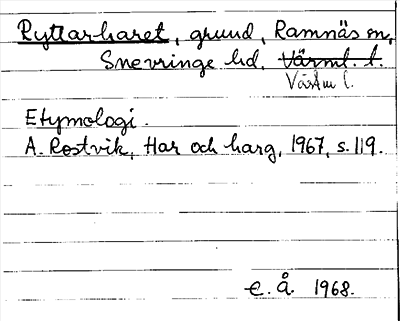 Ryttarharet, grund, Ramnäs sn,
Snevringe hd. Värml. l.
Västm l.
Etymologi.
A. Rostvik, Har och harg, 1967, s. 119.
E. Å 1968.